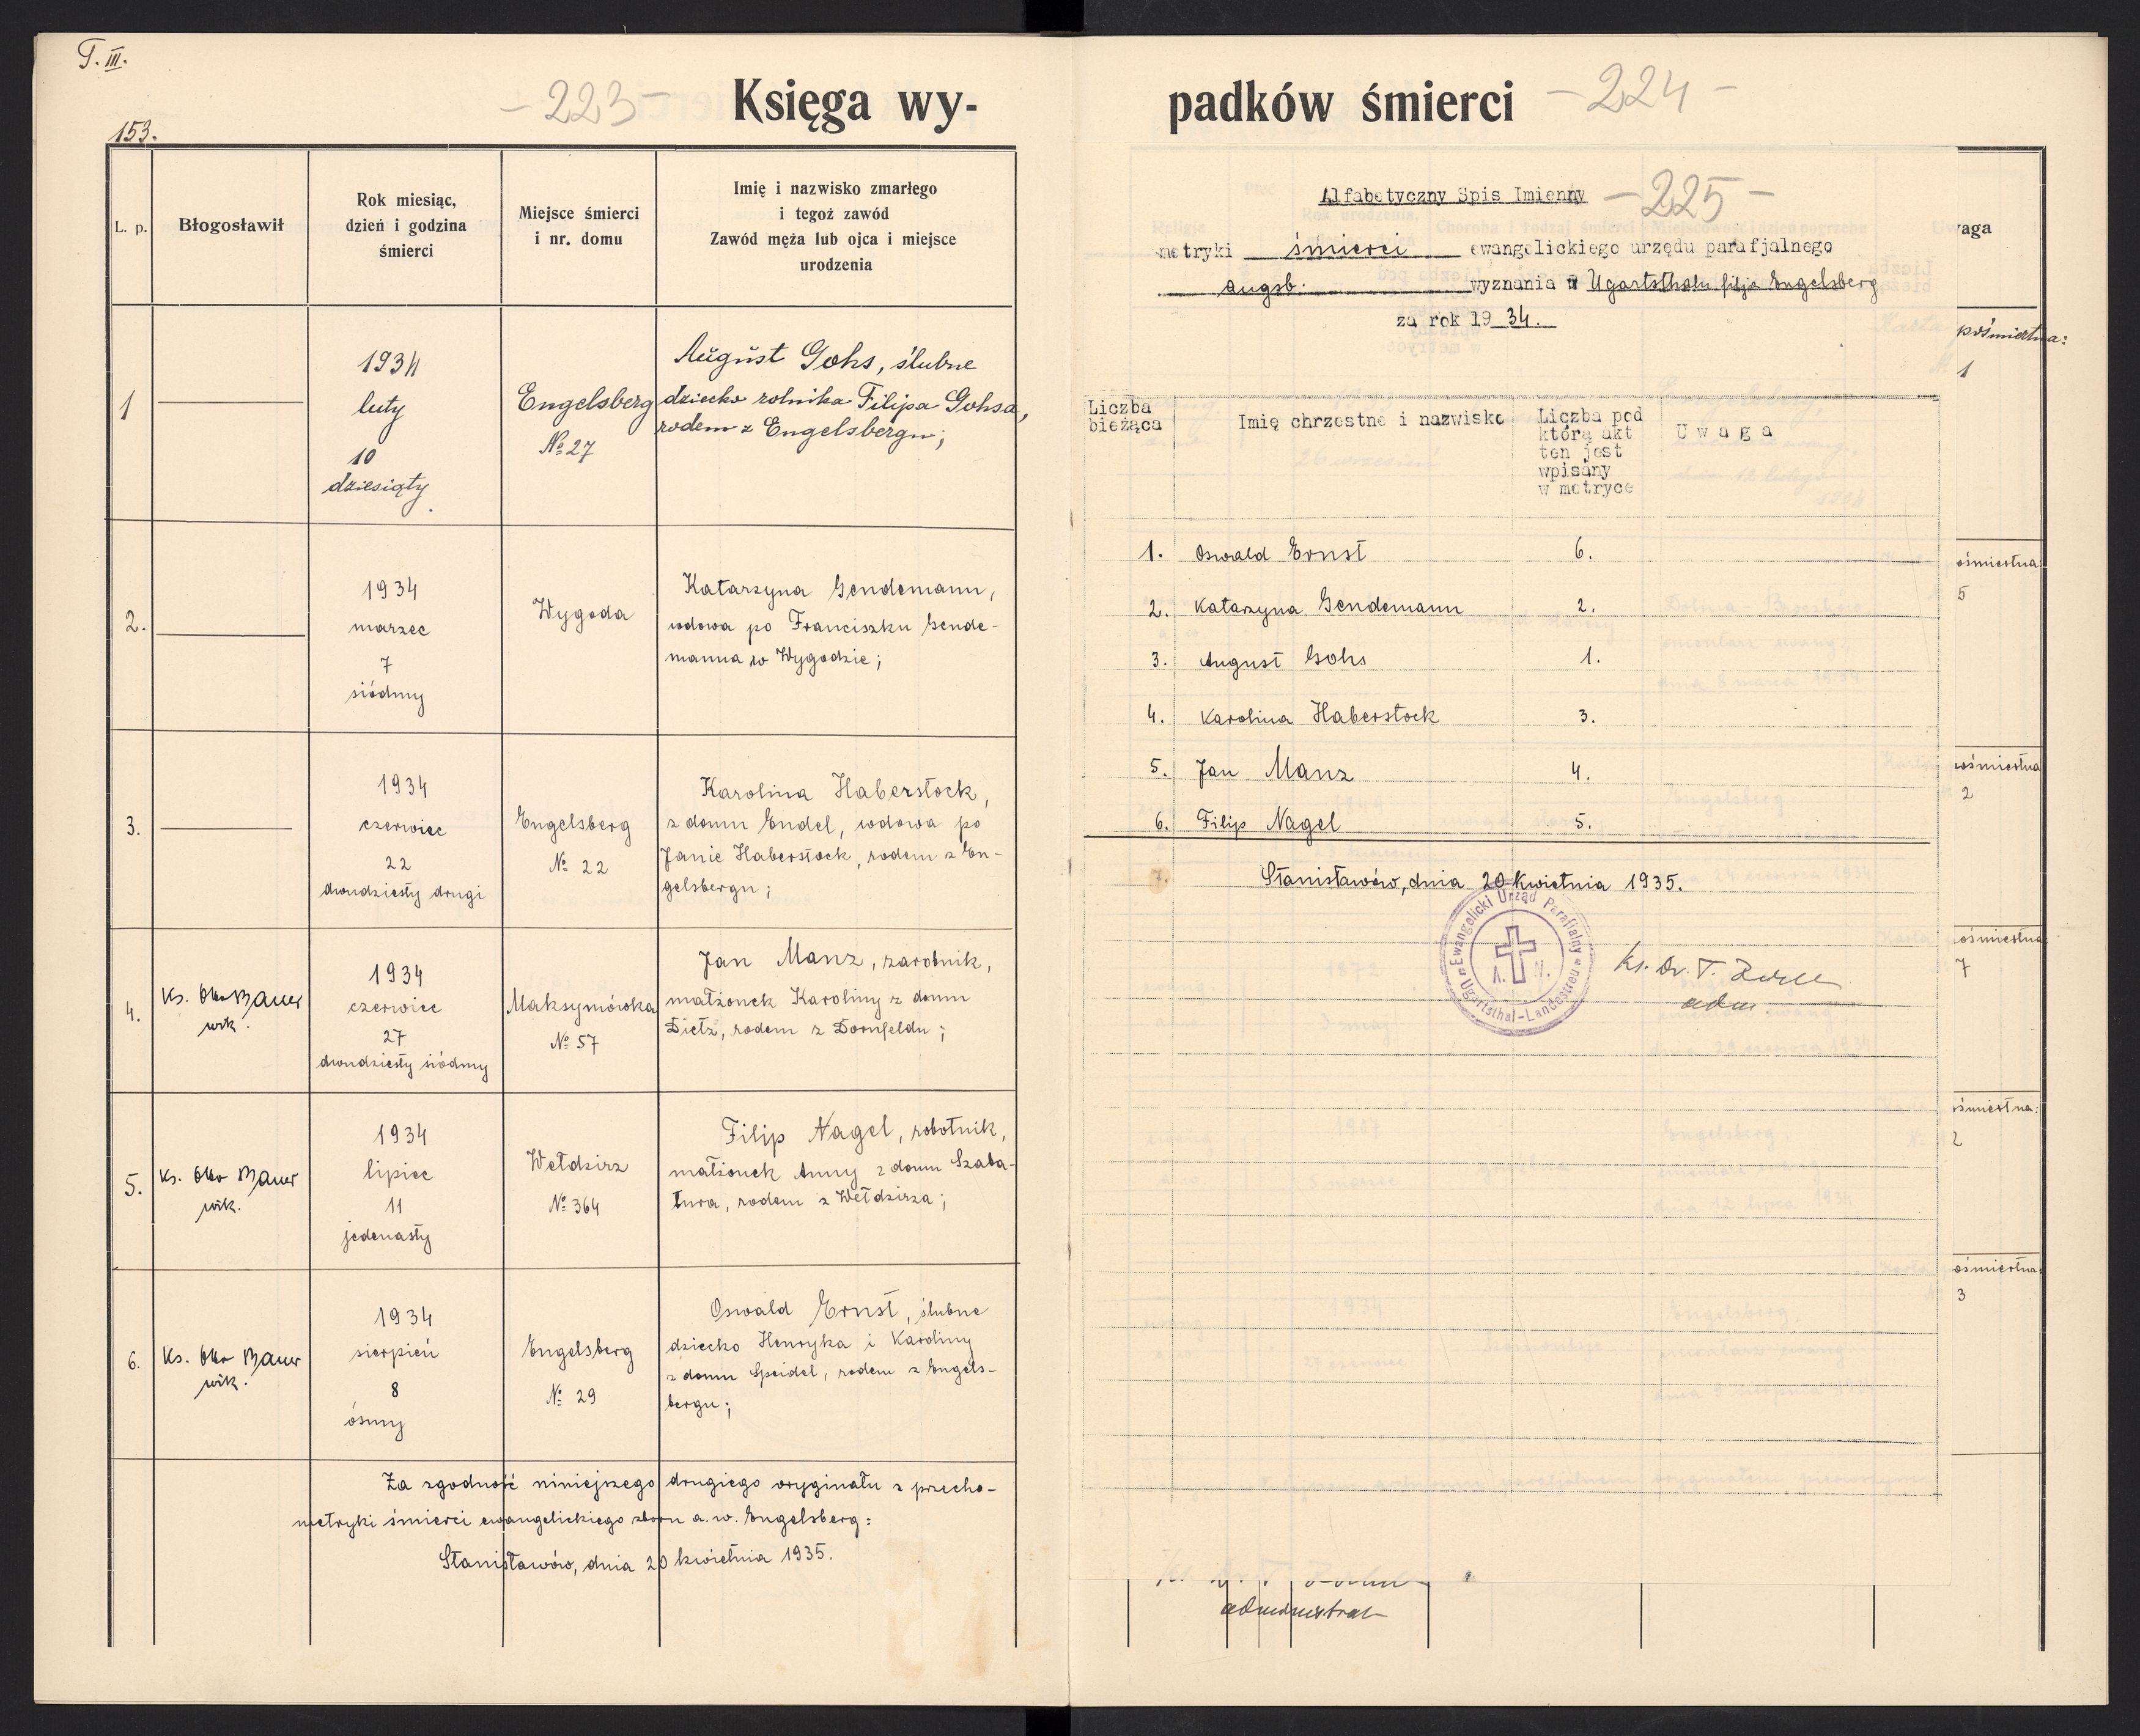 T. III.
- 223 -
Księga wy-
153.
L. p.
Błogosławił
Rok miesiąc,
dzień i godzina
śmierci
Miejsce śmierci
i nr. domu
Imię i nazwisko zmarłego
i tegoż zawód
Zawód męża lub ojca i miejsce
urodzenia
1
1934
luty
10
dziesiąty
Engelsberg
№ 27
August Gohs, ślubne
dziecko rolnika Filipa Gohsa,
rodem z Engelsbergu;
2.
1934
marzec
7
siódmy
Wygoda
Katarzyna Gendemann,
wdowa po Franciszku Gende-
manna w Wygodzie;
3.
1934
czerwiec
22
dwudziesty drugi
Engelsberg
№ 22
Karolina Haberstock,
z domu Endel, wdowa po
Janie Haberstock, rodem z En-
gelsbergu;
4.
Ks. Otto Bauer
wik.
1934
czerwiec
27
dwudziesty siódmy
Maksymówka
№ 57
Jan Manz, zarobnik,
małżonek Karoliny z domu
Dietz, rodem z Dornfeldu;
5.
Ks. Otto Bauer
wik.
1934
lipiec
11
jedenasty
Wełdzirz
№ 364
Filip Nagel, robotnik,
małżonek Anny z domu Szaba-
tura, rodem z Wełdzirza;
6.
Ks. Otto Bauer
wik.
1934
sierpień
8
ósmy
Engelsberg
№ 29
Oswald Ernst, ślubne
dziecko Henryka i Karoliny
z domu Speidel, rodem z Engels-
bergu;
Za zgodność niniejszego drugiego oryginału z przecho-
metryki śmierci ewangelickiego zboru a. w. Engelsberg:
Stanisławów, dnia 20 kwietnia 1935.
padków śmierci
- 224 -
Alfabetyczny Spis Imienny
- 225 -
metryki śmierci ewangelickiego urzędu parafjalnego
augsb. wyznania w Ugartsthalu filja Engelsberg
za rok 1934.
Liczba
bieżąca
Imię chrzestne i nazwisko
Liczba pod
którą akt
ten jest
wpisany
w metryce
Uwaga
1. Oswald Ernst 6.
2. Katarzyna Gendemann 2.
3. August Gohs 1.
4. Karolina Haberstock 3.
5. Jan Manz 4.
6. Filip Nagel 5.
7.
Stanisławów, dnia 20 kwietnia 1935.
Ewangelicki Urząd Parafialny
A. W.
Ugartsthal-Landestreu
Ks. Dr. T.
adm.
administrat
waga
pośmiertna:
1
ośmiertna:
5
ośmiertna
2
ośmiertna:
7
śmiertna:
2
ośmiertna:
3